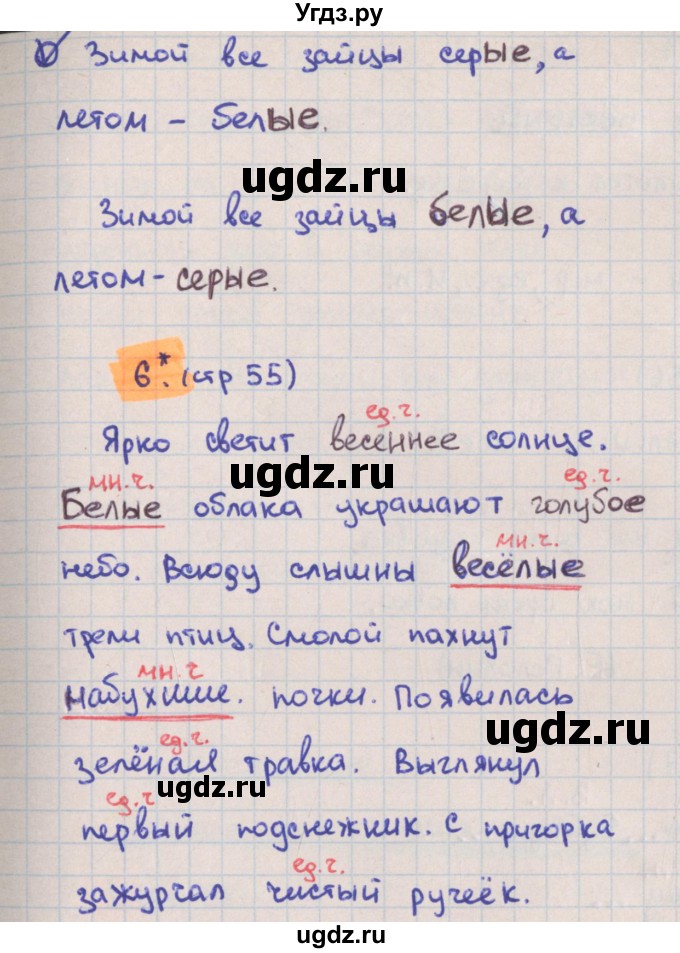 Угдз.ру
Зимой все зайцы серые, а
летом - белые.
ugdz.ru
Зимой все зайцы белые, а
летом - серые.
6*. (стр 55)
ед.ч.
Ярко светит весеннее солнце.
ugdz.ru
мн.ч. ед.ч.
Белые облака украшают голубое
мн.ч.
небо. Всюду слышны весёлые
трели птиц. Смолой пахнут
мн.ч
набухшие. почки. Появилась
ugdz.ru
ед.ч.
зелёная травка. Выглянул
ugdz.ru
ед.ч
первый подснежник. С пригорка
ед.ч.
зажурчал чистый ручеёк.
ugdz.ru